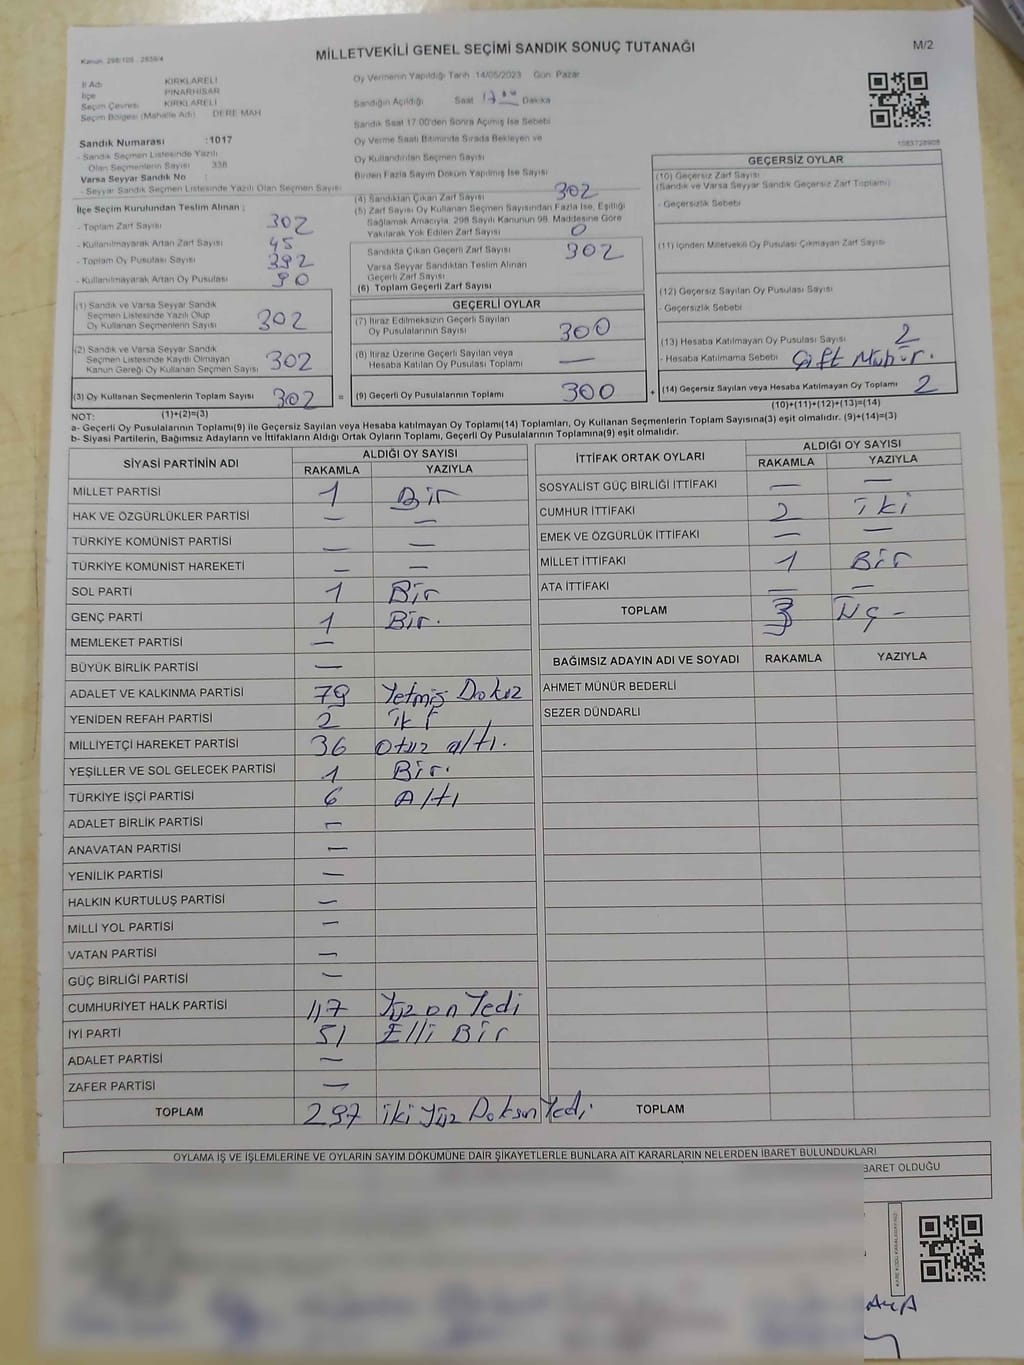 Kanun: 298/105 , 2839/4
MİLLETVEKİLİ GENEL SEÇİMİ SANDIK SONUÇ TUTANAĞI
M/2
İl Adı KIRKLARELİ
İlçe PINARHİSAR
Seçim Çevresi KIRKLARELİ
Seçim Bölgesi (Mahalle Adı) DERE MAH
Sandık Numarası : 1017
- Sandık Seçmen Listesinde Yazılı
Olan Seçmenlerin Sayısı 338
Varsa Seyyar Sandık No :
- Seyyar Sandık Seçmen Listesinde Yazılı Olan Seçmen Sayısı
Oy Vermenin Yapıldığı Tarih 14/05/2023 Gün Pazar
Sandığın Açıldığı Saat 17:00 Dakika
Sandık Saat 17:00'den Sonra Açılmış İse Sebebi
Oy Verme Saati Bitiminde Sırada Bekleyen ve
Oy Kullandırılan Seçmen Sayısı
Birden Fazla Sayım Döküm Yapılmış İse Sayısı
1083728908
İlçe Seçim Kurulundan Teslim Alınan ;
- Toplam Zarf Sayısı 302
- Kullanılmayarak Artan Zarf Sayısı 45
- Toplam Oy Pusulası Sayısı 392
- Kullanılmayarak Artan Oy Pusulası 90
(1) Sandık ve Varsa Seyyar Sandık
Seçmen Listesinde Yazılı Olup
Oy Kullanan Seçmenlerin Sayısı 302
(2) Sandık ve Varsa Seyyar Sandık
Seçmen Listesinde Kayıtlı Olmayan
Kanun Gereği Oy Kullanan Seçmen Sayısı 302
(3) Oy Kullanan Seçmenlerin Toplam Sayısı 302 =
(1)+(2)=(3)
(4) Sandıktan Çıkan Zarf Sayısı 302
(5) Zarf Sayısı Oy Kullanan Seçmen Sayısından Fazla İse, Eşitliği
Sağlamak Amacıyla, 298 Sayılı Kanunun 98. Maddesine Göre
Yakılarak Yok Edilen Zarf Sayısı 0
Sandıkta Çıkan Geçerli Zarf Sayısı 302
Varsa Seyyar Sandıktan Teslim Alınan
Geçerli Zarf Sayısı
(6) Toplam Geçerli Zarf Sayısı
GEÇERLİ OYLAR
(7) İtiraz Edilmeksizin Geçerli Sayılan
Oy Pusulalarının Sayısı 300
(8) İtiraz Üzerine Geçerli Sayılan veya
Hesaba Katılan Oy Pusulası Toplamı —
(9) Geçerli Oy Pusulalarının Toplamı 300 +
GEÇERSİZ OYLAR
(10) Geçersiz Zarf Sayısı
(Sandık ve Varsa Seyyar Sandık Geçersiz Zarf Toplamı)
- Geçersizlik Sebebi
(11) İçinden Milletvekili Oy Pusulası Çıkmayan Zarf Sayısı
(12) Geçersiz Sayılan Oy Pusulası Sayısı
- Geçersizlik Sebebi
(13) Hesaba Katılmayan Oy Pusulası Sayısı 2
- Hesaba Katılmama Sebebi Çift Mühür.
(14) Geçersiz Sayılan veya Hesaba Katılmayan Oy Toplamı 2
(10)+(11)+(12)+(13)=(14)
NOT:
a- Geçerli Oy Pusulalarının Toplamı(9) ile Geçersiz Sayılan veya Hesaba katılmayan Oy Toplamı(14) Toplamları, Oy Kullanan Seçmenlerin Toplam Sayısına(3) eşit olmalıdır. (9)+(14)=(3)
b- Siyasi Partilerin, Bağımsız Adayların ve İttifakların Aldığı Ortak Oyların Toplamı, Geçerli Oy Pusulalarının Toplamına(9) eşit olmalıdır.
SİYASİ PARTİNİN ADI ALDIĞI OY SAYISI
RAKAMLA YAZIYLA
MİLLET PARTİSİ 1 Bir
HAK VE ÖZGÜRLÜKLER PARTİSİ — —
TÜRKİYE KOMÜNİST PARTİSİ — —
TÜRKİYE KOMÜNİST HAREKETİ — —
SOL PARTİ 1 Bir
GENÇ PARTİ 1 Bir.
MEMLEKET PARTİSİ —
BÜYÜK BİRLİK PARTİSİ —
ADALET VE KALKINMA PARTİSİ 79 Yetmiş Dokuz
YENİDEN REFAH PARTİSİ 2 iki
MİLLİYETÇİ HAREKET PARTİSİ 36 otuz altı.
YEŞİLLER VE SOL GELECEK PARTİSİ 1 Bir.
TÜRKİYE İŞÇİ PARTİSİ 6 Altı
ADALET BİRLİK PARTİSİ —
ANAVATAN PARTİSİ —
YENİLİK PARTİSİ —
HALKIN KURTULUŞ PARTİSİ —
MİLLİ YOL PARTİSİ —
VATAN PARTİSİ —
GÜÇ BİRLİĞİ PARTİSİ —
CUMHURİYET HALK PARTİSİ 117 Yüz on Yedi
İYİ PARTİ 51 Elli Bir
ADALET PARTİSİ —
ZAFER PARTİSİ —
TOPLAM 297 iki Yüz Doksan Yedi
İTTİFAK ORTAK OYLARI ALDIĞI OY SAYISI
RAKAMLA YAZIYLA
SOSYALİST GÜÇ BİRLİĞİ İTTİFAKI — —
CUMHUR İTTİFAKI 2 iki
EMEK VE ÖZGÜRLÜK İTTİFAKI — —
MİLLET İTTİFAKI 1 Bir
ATA İTTİFAKI — —
TOPLAM 3 Üç -
BAĞIMSIZ ADAYIN ADI VE SOYADI RAKAMLA YAZIYLA
AHMET MÜNÜR BEDERLİ
SEZER DÜNDARLI
TOPLAM
OYLAMA İŞ VE İŞLEMLERİNE VE OYLARIN SAYIM DÖKÜMÜNE DAİR ŞİKAYETLERLE BUNLARA AİT KARARLARIN NELERDEN İBARET BULUNDUKLARI
BARET OLDUĞU